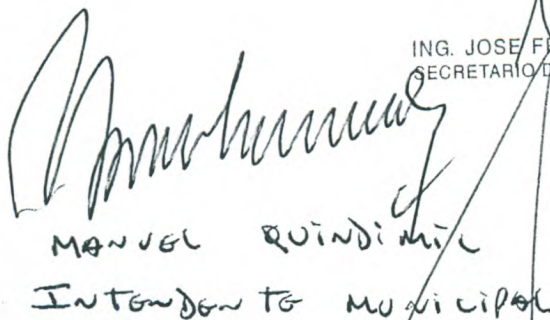 ING. JOSE FE
SECRETARIO D
MANUEL QUINDIMIL
INTENDENTE MUNICIPAL